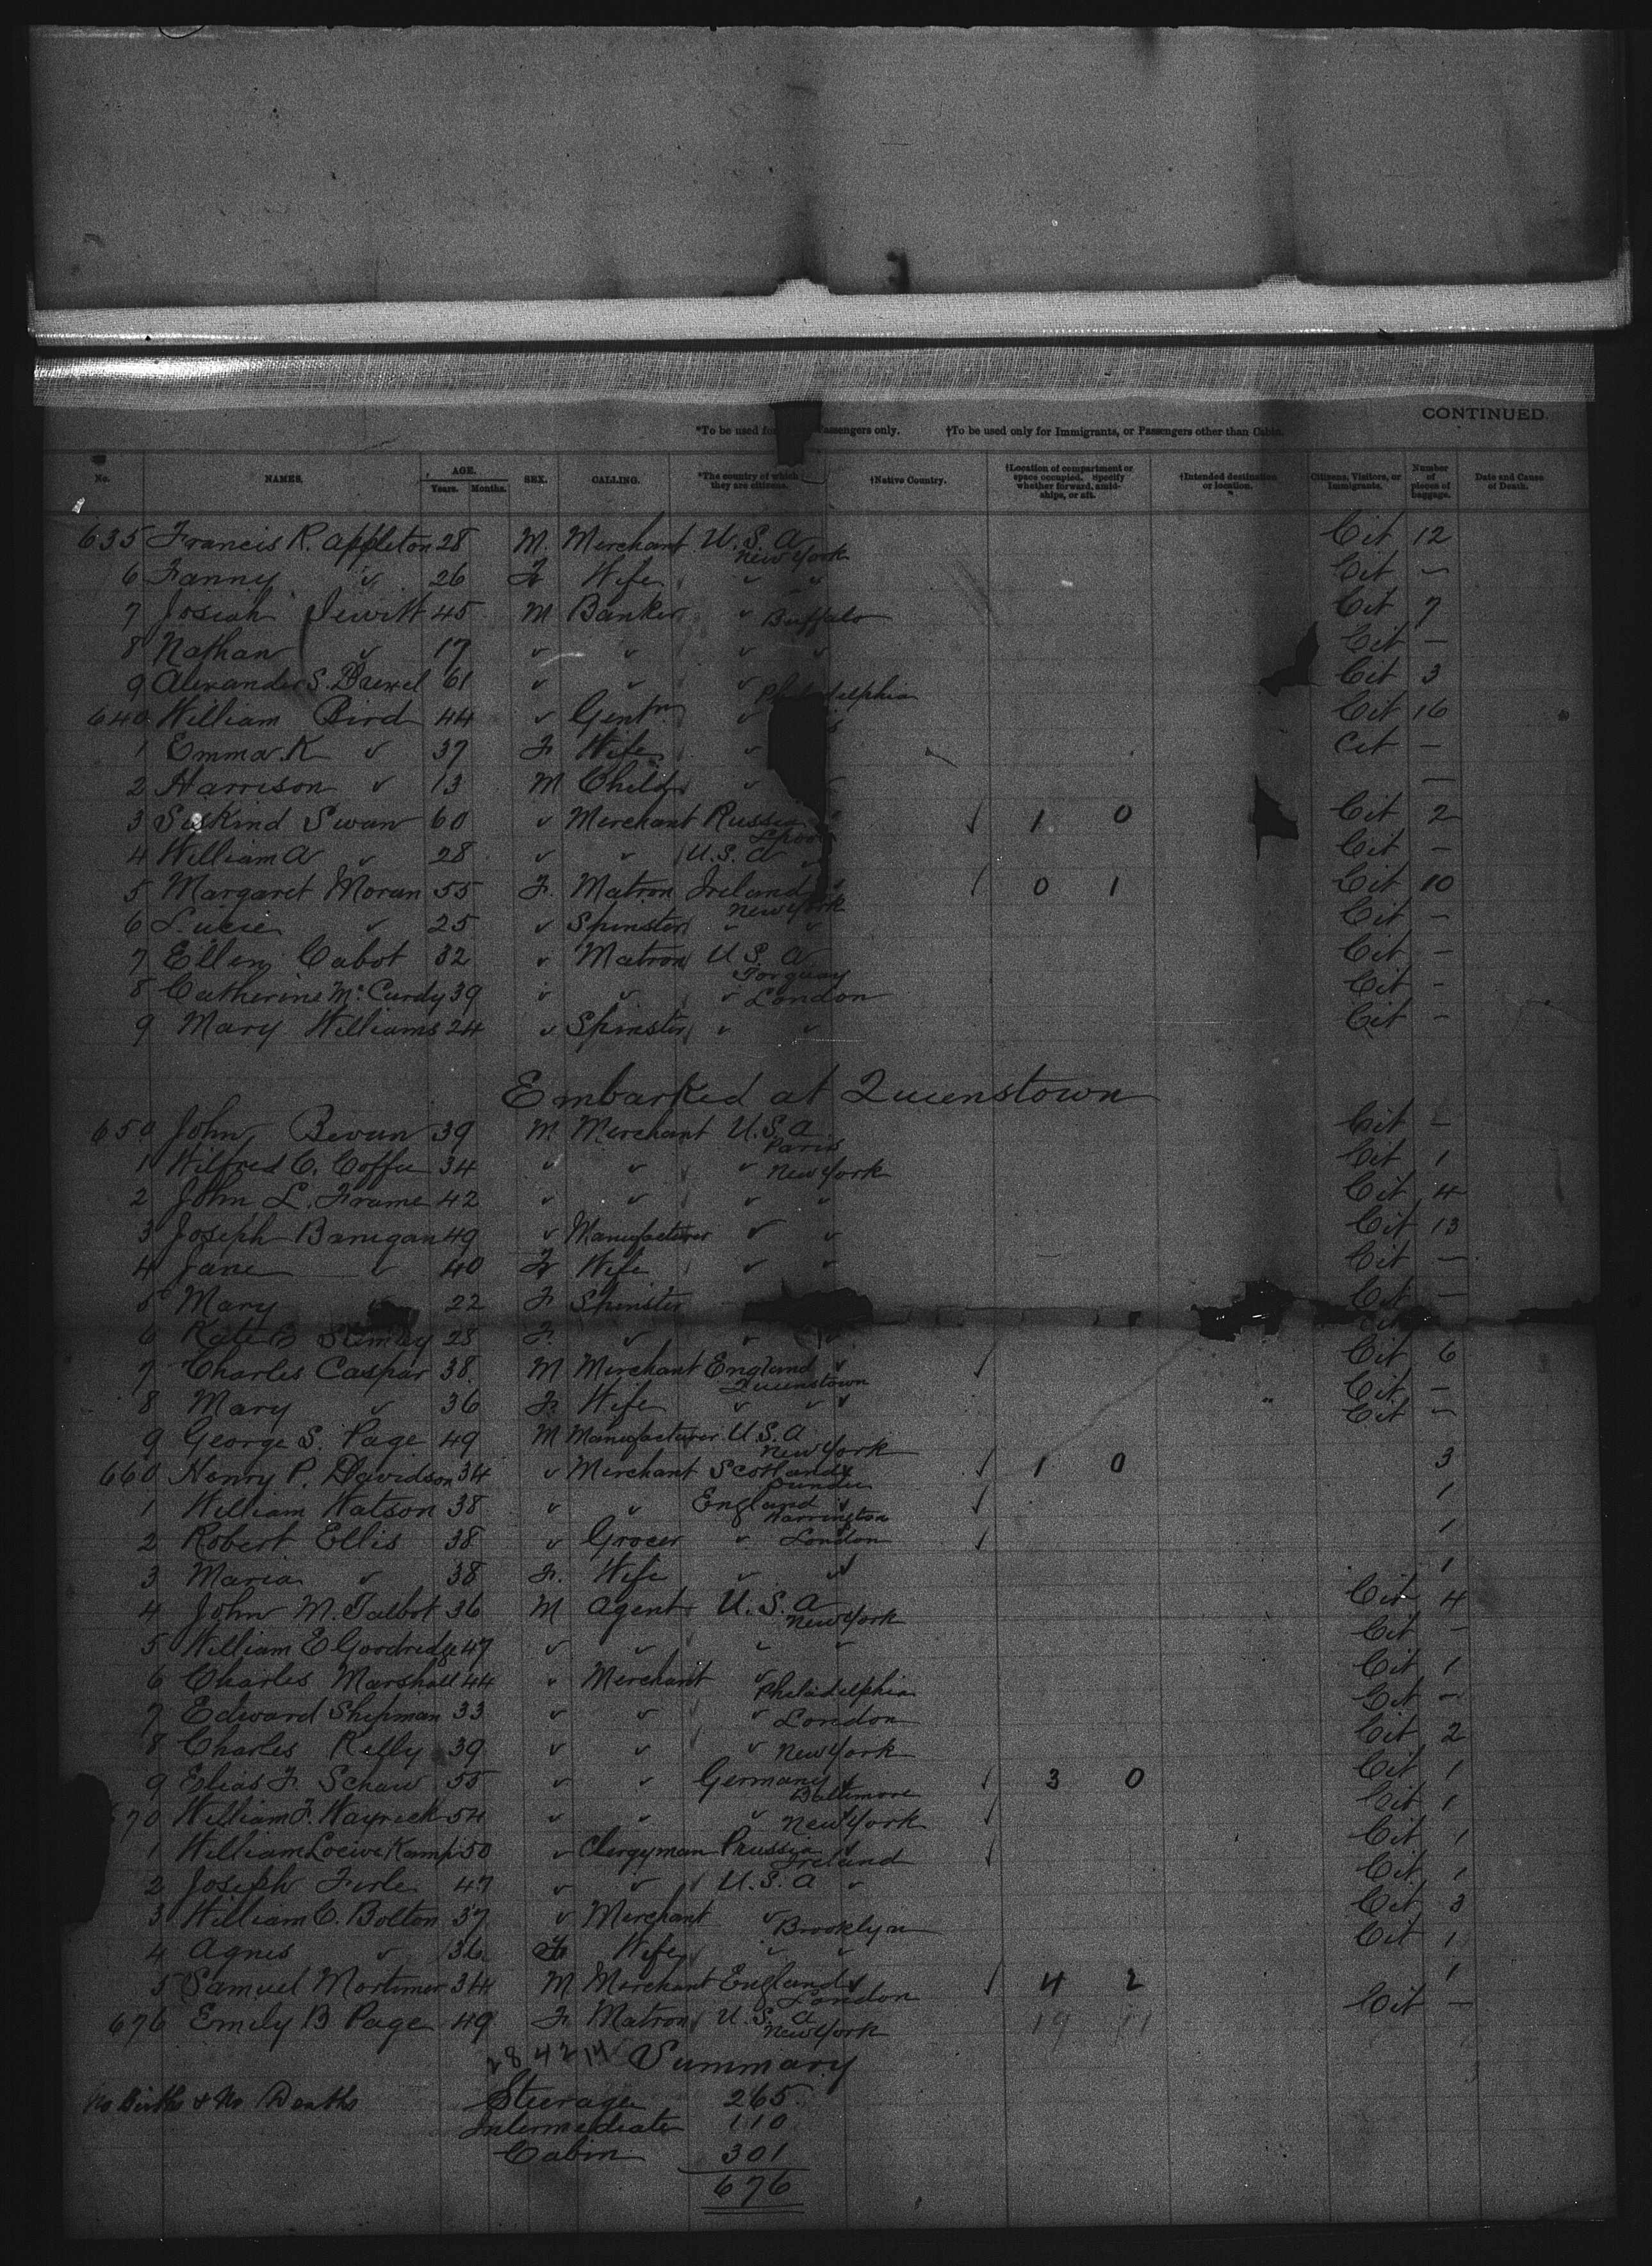 CONTINUED.
*To be used for Passengers only. †To be used only for Immigrants, or Passengers other than Cabin.
No. NAMES. AGE. Years. Months. SEX. CALLING. *The country of which they are citizens. †Native Country. †Location of compartment or space occupied. Specify whether forward, amidships, or aft. †Intended destination or location. Citizens, Visitors, or Immigrants. Number of pieces of baggage. Date and Cause of Death.
635 Francis R. Appleton 28 M. Merchant U.S.A New York Cit 12
6 Fanny " 26 F Wife " " Cit —
7 Josiah Jewitt 45 M Banker " Buffalo Cit 7
8 Nathan " 17 " " " " Cit —
9 Alexander S. Drexel 61 " " " Philadelphia Cit 3
640 William Bird 44 " Gentn " Cit 16
1 Emma K " 37 F Wife " Cit —
2 Harrison " 13 M Child " " —
3 Suskind Swan 60 " Merchant Russia Lpool 1 0 Cit 2
4 William A " 28 " " U.S.A " Cit —
5 Margaret Moran 55 F. Matron Ireland New York 0 1 Cit 10
6 Lucie " 25 " Spinster " " Cit —
7 Ellen Cabot 32 " Matron U.S.A Torquay Cit —
8 Catherine McCurdy 39 " " " London Cit —
9 Mary Williams 24 " Spinster " " Cit —
Embarked at Queenstown
650 John Bevan 39 M. Merchant U.S.A Paris Cit —
1 Wilfred C. Coffee 34 " " " New York Cit 1
2 John L. Frame 42 " " " " Cit 4
3 Joseph Banigan 49 " Manufacturer " " Cit 13
4 Jane " 40 F Wife " " Cit —
5 Mary 22 F Spinster Cit —
6 Kate B 28 F. " " " Cit
7 Charles Caspar 38 M Merchant England Queenstown Cit 6
8 Mary " 36 F Wife " " Cit —
9 George S. Page 49 M Manufacturer U.S.A New York Cit —
660 Henry P. Davidson 34 " Merchant Scotland Dundee 1 0 3
1 William Watson 38 " " England Warrington 1
2 Robert Ellis 38 " Grocer " London 1
3 Maria " 38 F. Wife " " 1
4 John M. Talbot 36 M Agent U.S.A New York Cit 4
5 William E Goodredge 47 " " " " Cit —
6 Charles Marshall 44 " Merchant " Philadelphia Cit 1
7 Edward Shipman 33 " " " London Cit —
8 Charles Kelly 39 " " " New York Cit 2
9 Elias F. Schaw 55 " " Germany Baltimore 3 0 Cit 1
70 William F. Wayreck 54 " " " New York Cit 1
1 William Loewe Kamp 50 " Clergyman Prussia Ireland Cit 1
2 Joseph Firle 47 " " U.S.A " Cit 1
3 William C. Bolton 37 " Merchant " Brooklyn Cit 3
4 Agnes " 36 F Wife " " Cit 1
5 Samuel Mortimer 34 M Merchant England London 4 2 1
676 Emily B Page 49 F Matron U.S.A New York 19 11 Cit —
28 42 14 Summary
No Births & No Deaths Steerage 265
Intermediate 110
Cabin 301
676